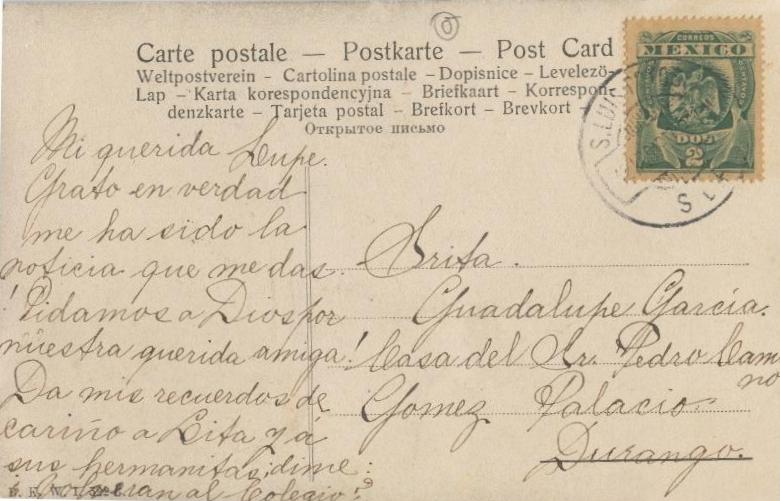 Carte postale — Postkarte — Post Card
Weltpostverein – Cartolina postale – Dopisnice – Levelező-
Lap – Karta korespondencyjna – Briefkaart – Korrespon-
denzkarte – Tarjeta postal – Brefkort – Brevkort –
Открытое письмо
CORREOS
MEXICO
DOS
2
S. LUIS
Mi querida Lupe.
Grato en verdad
me ha sido la
noticia que me das.
¡Pidamos a Dios por
nuestra querida amiga!
Da mis recuerdos de
cariño a Lita y á
sus hermanitas, dime:
al Colegio?
Srita.
Guadalupe García.
Casa del Sr. Pedro Cam
no
Gomez Palacio.
Durango.